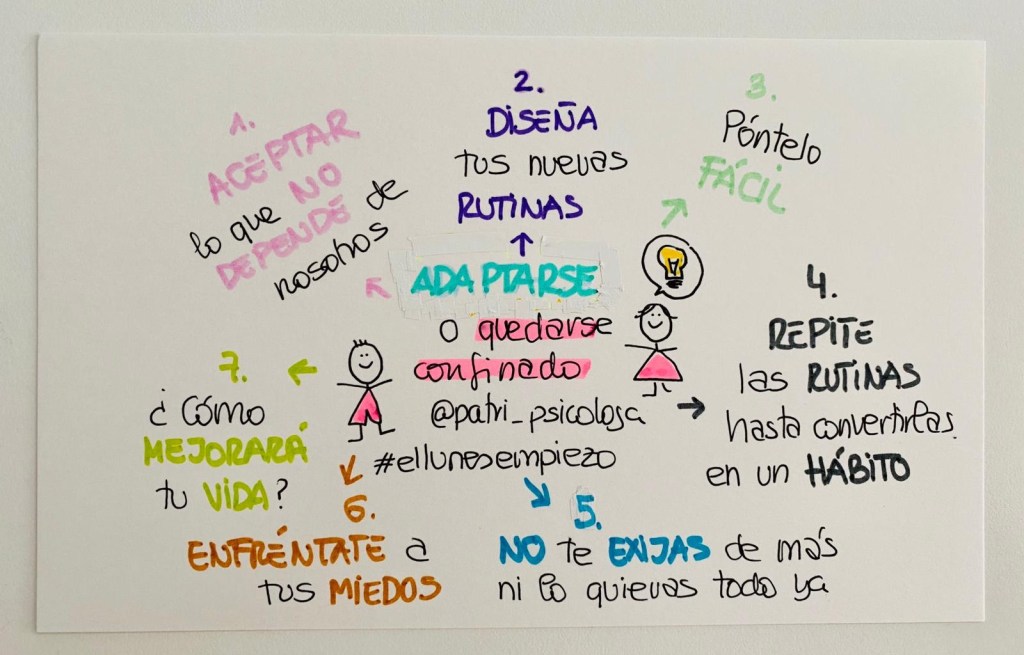 1.
ACEPTAR
lo que NO
DEPENDE de
nosotros
2.
DISEÑA
tus nuevas
RUTINAS
3.
Póntelo
FÁCIL
ADAPTARSE
o quedarse
confinado
@patri_psicologa
#ellunesempiezo
4.
REPITE
las RUTINAS
hasta convertirlas
en un HÁBITO
5.
NO te EXIJAS de más
ni lo quieras todo ya
6.
ENFRÉNTATE a
tus MIEDOS
7.
¿Cómo
MEJORARÁ
tu VIDA?